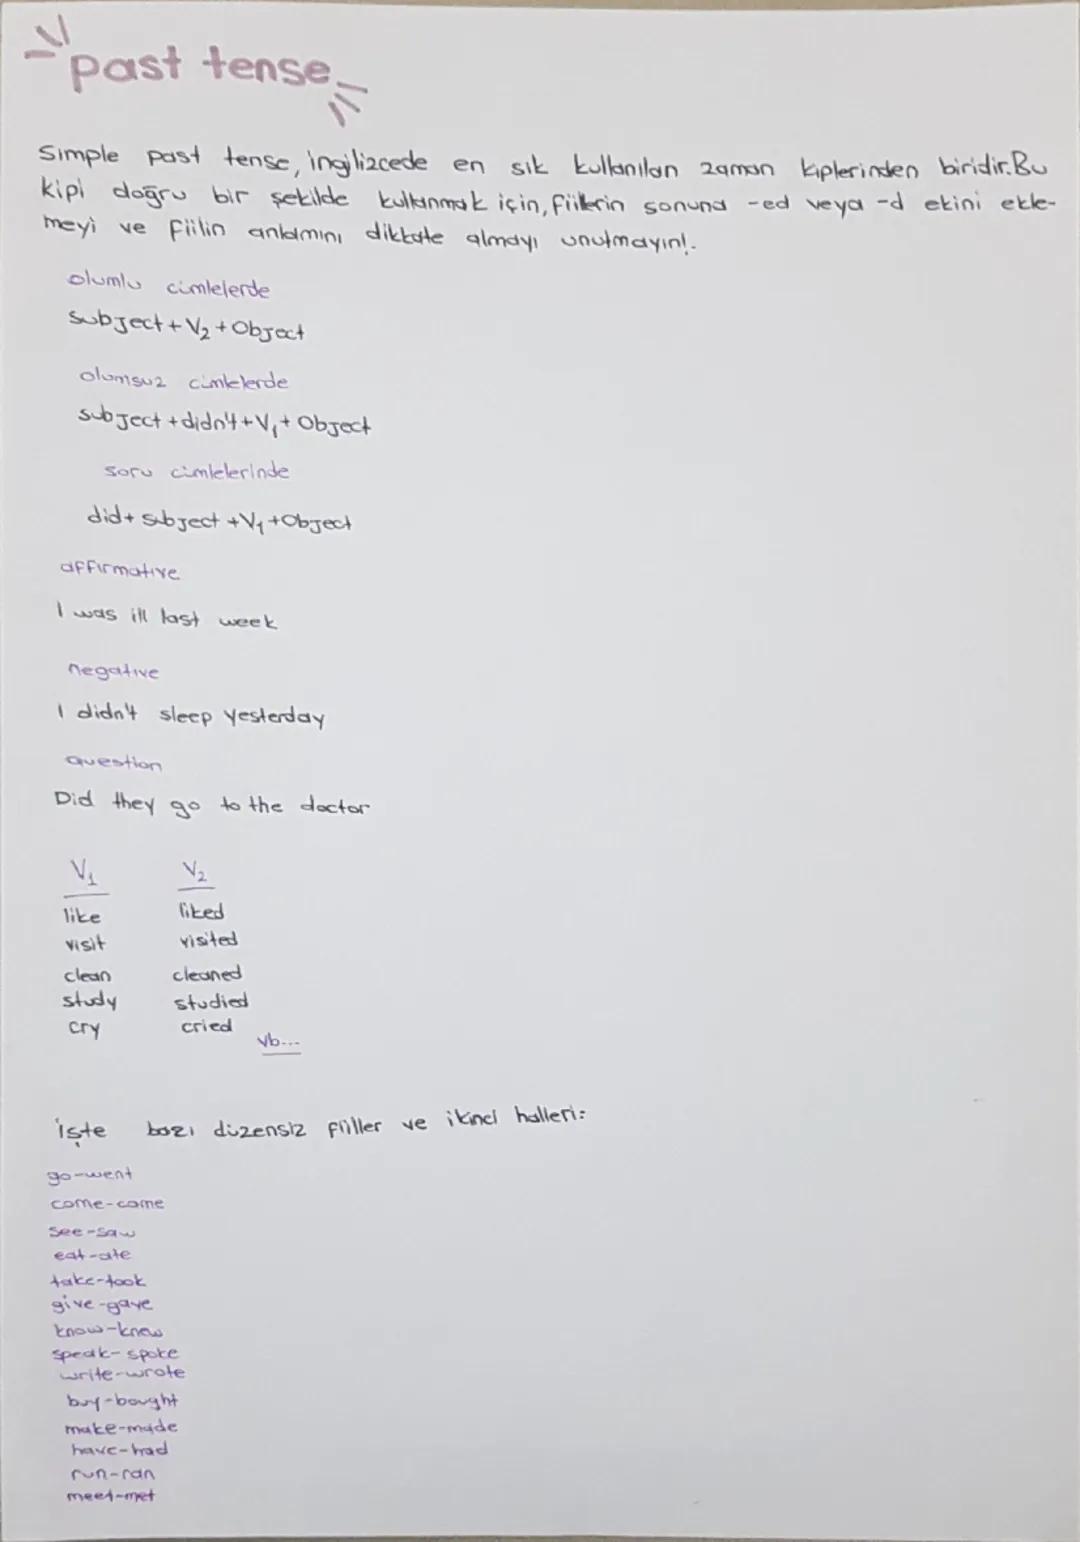 past tense
Simple past tense, ingilizcede en sık kullanılan zaman kiplerinden biridir. Bu
kipi doğru bir şekilde kullanmak için, fiillerin sonuna -ed veya -d ekini ekle-
meyi ve fiilin anlamını dikkate almayı unutmayın!.
olumlu cümlelerde
Subject + V2 + Object
olumsuz cümlelerde
subject + didn't + V1 + Object
soru cümlelerinde
did + subject + V1 + Object
affirmative
I was ill last week
negative
I didn't sleep yesterday
question
Did they go to the doctor
V1 V2
like liked
visit visited
clean cleaned
study studied
cry cried
vb...
işte bazı düzensiz fiiller ve ikinci halleri:
go-went
come-came
see-saw
eat-ate
take-took
give-gave
know-knew
speak-spoke
write-wrote
buy-bought
make-made
have-had
run-ran
meet-met